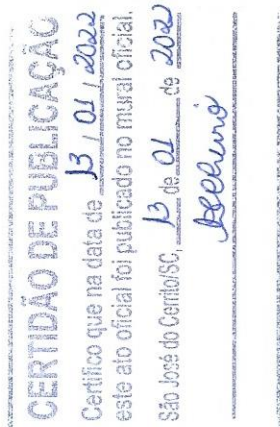 CERTIDÃO DE PUBLICAÇÃO
Certifico que na data de 13 / 01 / 2022
este ato oficial foi publicado no mural oficial.
São José do Cerrito/SC, 13 de 01 de 202